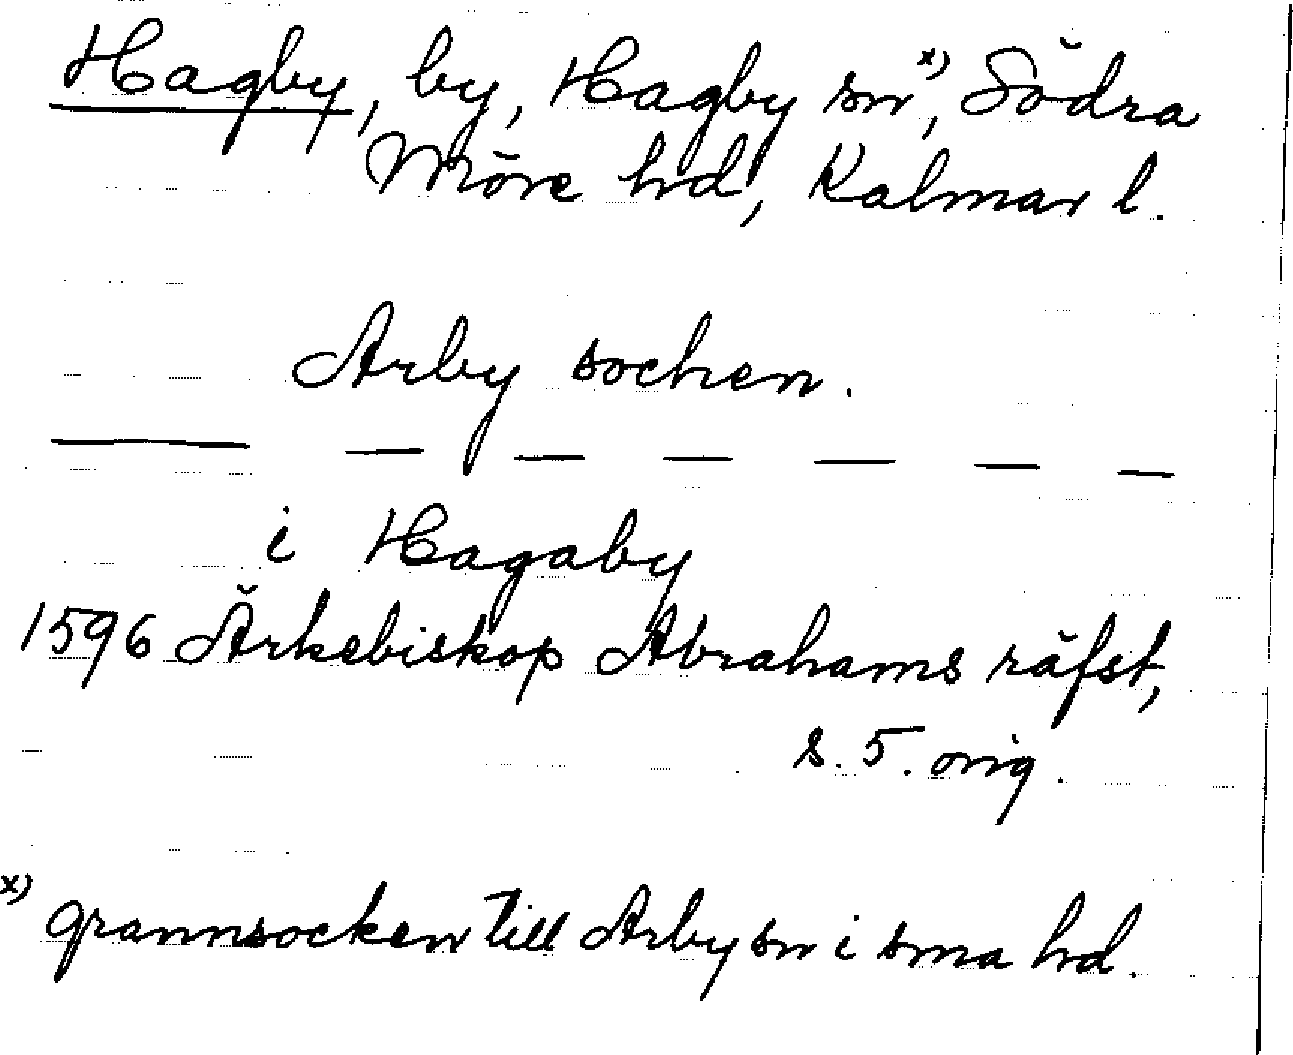 Hagby, by, Hagby sn x), Södra
Möre hd, Kalmar l.
Arby socken.
— — — — — — —
i Hagaby
1596 Ärkebiskop Abrahams räfst,
s. 5. orig.
x) grannsocken till Arby sn i sma hd.